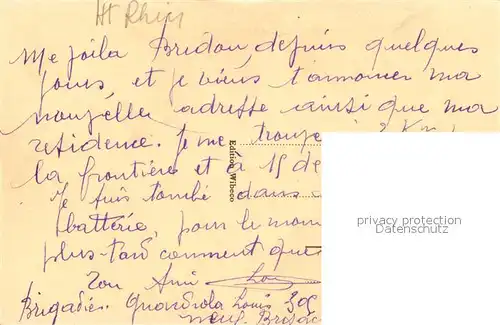 Ht Rhin
Me voila Bridou, depuis quelques
jours, et je viens t'annoncer ma
nouvelle adresse ainsi que ma
residence. Je me trouve à 2 Km
la frontière et à 15 de
Je suis tombé dans
batterie, pour le mom
plus-tard comment que
Ton Ami Lou
Brigadier Louis
Neuf Brisac
Edition Wibeco
privacy protection
Datenschutz